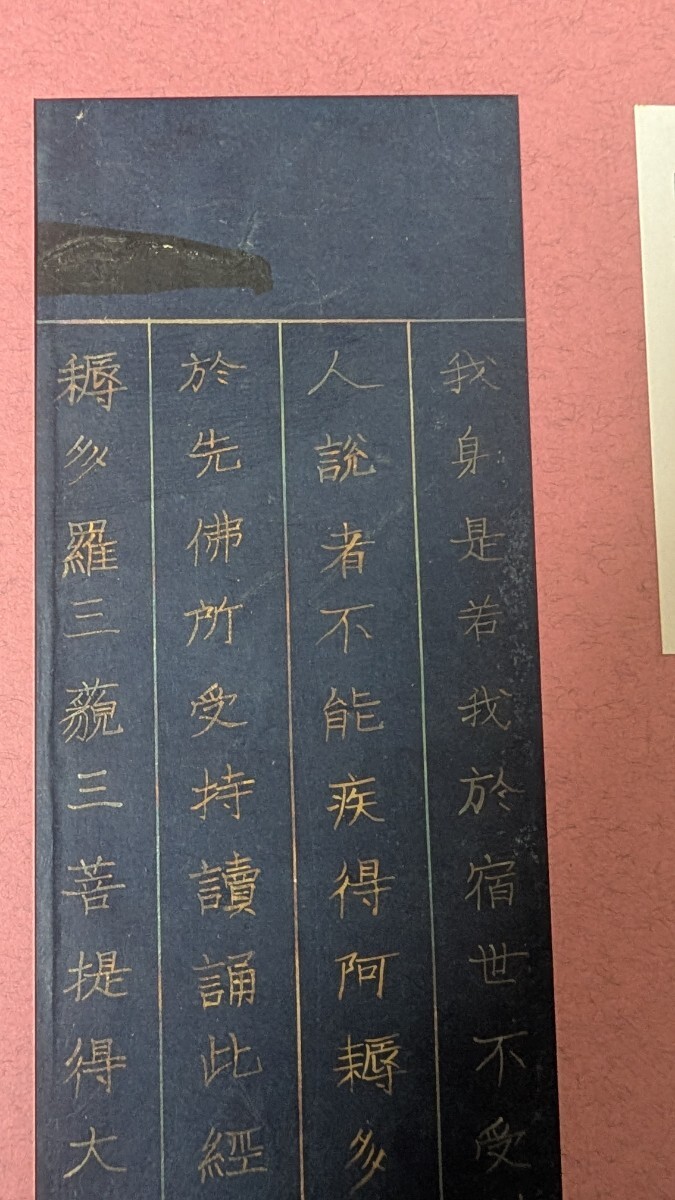 我身是若我於宿世不受
人說者不能疾得阿耨多
於先佛所受持讀誦此經
耨多羅三藐三菩提得大